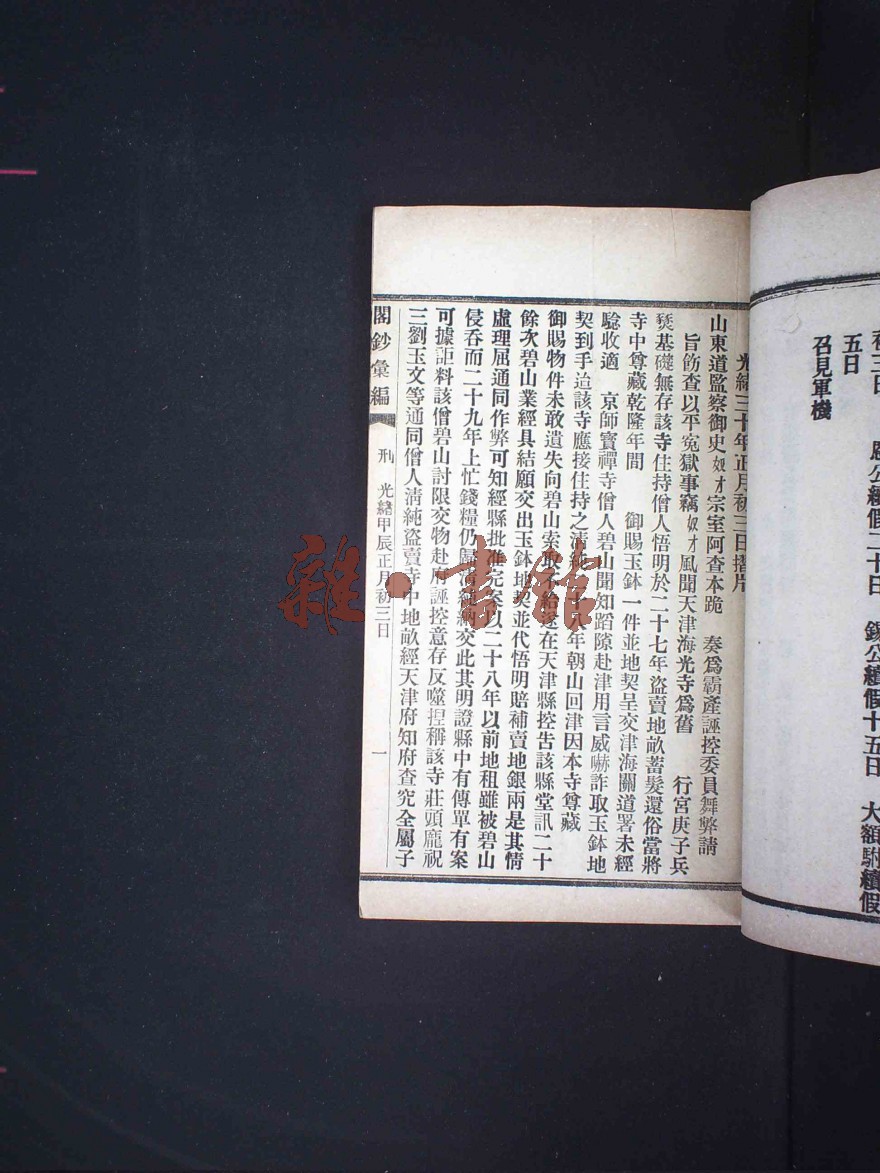 五日
召見軍機
光緒三十年正月初三日摺片
山東道監察御史奴才宗室阿查本跪 奏爲霸產誣控委員舞弊請
旨飭查以平寃獄事竊奴才風聞天津海光寺爲舊 行宮庚子兵
燹基礎無存該寺住持僧人悟明於二十七年盜賣地畝蓄髮還俗當將
寺中尊藏乾隆年間 御賜玉鉢一件並地契呈交津海關道署未經
騐收適 京師寶禪寺僧人碧山聞知蹈隙赴津用言威嚇詐取玉鉢地
契到手迨該寺應接住持之清 十八年朝山回津因本寺尊藏
御賜物件未敢遺失向碧山索取不給遂在天津縣控告該縣堂訊二十
餘次碧山業經具結願交出玉鉢地契並代悟明賠補賣地銀兩是其情
虛理屈通同作弊可知經縣批准完案以二十八年以前地租雖被碧山
侵呑而二十九年上忙錢糧仍歸清純納交此其明證縣中有傳單有案
可據詎料該僧碧山討限交物赴府誣控意存反噬揑稱該寺莊頭龐祝
三劉玉文等通同僧人淸純盜賣寺中地畝經天津府知府查究全屬子
閣鈔彙編 刑 光緒甲辰正月初三日 一
雜·書館